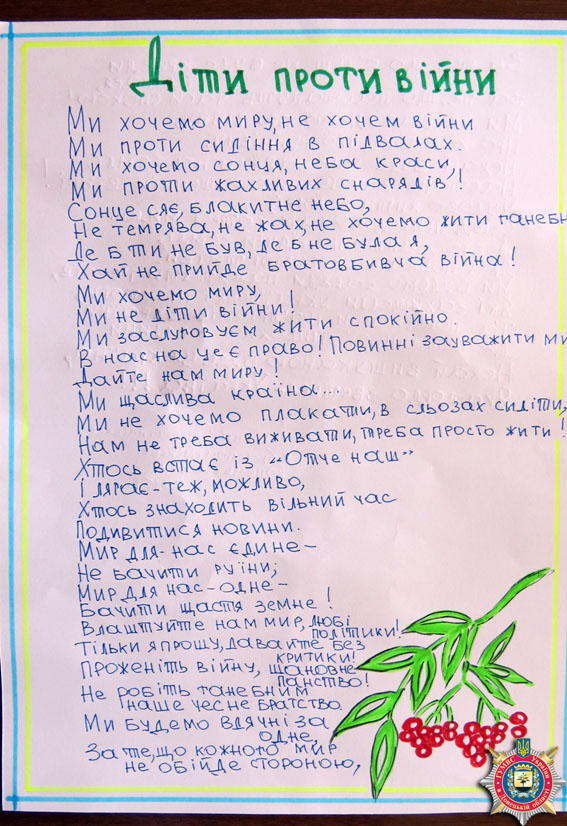 Діти проти війни
Ми хочемо миру, не хочем війни
Ми проти сидіння в підвалах.
Ми хочемо сонця, неба краси,
Ми проти жахливих снарядів!
Сонце сяє, блакитне небо,
Не темрява, не жах, не хочемо жити ганебн
Де б ти не був, де б не була я,
Хай не прийде братовбивча війна!
Ми хочемо миру,
Ми не діти війни!
Ми заслуговуєм жити спокійно.
В нас на це є право! Повинні зауважити ми
Дайте нам миру!
Ми щаслива країна...
Ми не хочемо плакати, в сльозах сидіти,
Нам не треба виживати, треба просто жити!
Хтось встає із "Отче наш"
І лягає - теж, можливо,
Хтось знаходить вільний час
Подивитися новини.
Мир для - нас єдине -
Не бачити руїни;
Мир для нас - одне -
Бачити щастя земне!
Влаштуйте нам мир, любі
політики!
Тільки я прошу, давайте без
критики!
Проженіть війну, шановне
панство!
Не робіть ганебним
наше чесне братство.
Ми будемо вдячні за
одне,
За те, що кожного мир
не обійде стороною,